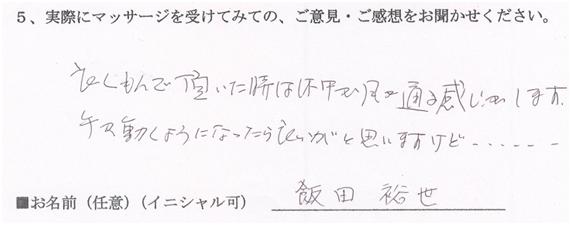 5、実際にマッサージを受けてみての、ご意見・ご感想をお聞かせください。
良くもんで頂いた時は体中が風を通る感じがします。
手が動くようになったら良いがと思いますけど......
■お名前（任意）（イニシャル可） 飯田 裕世